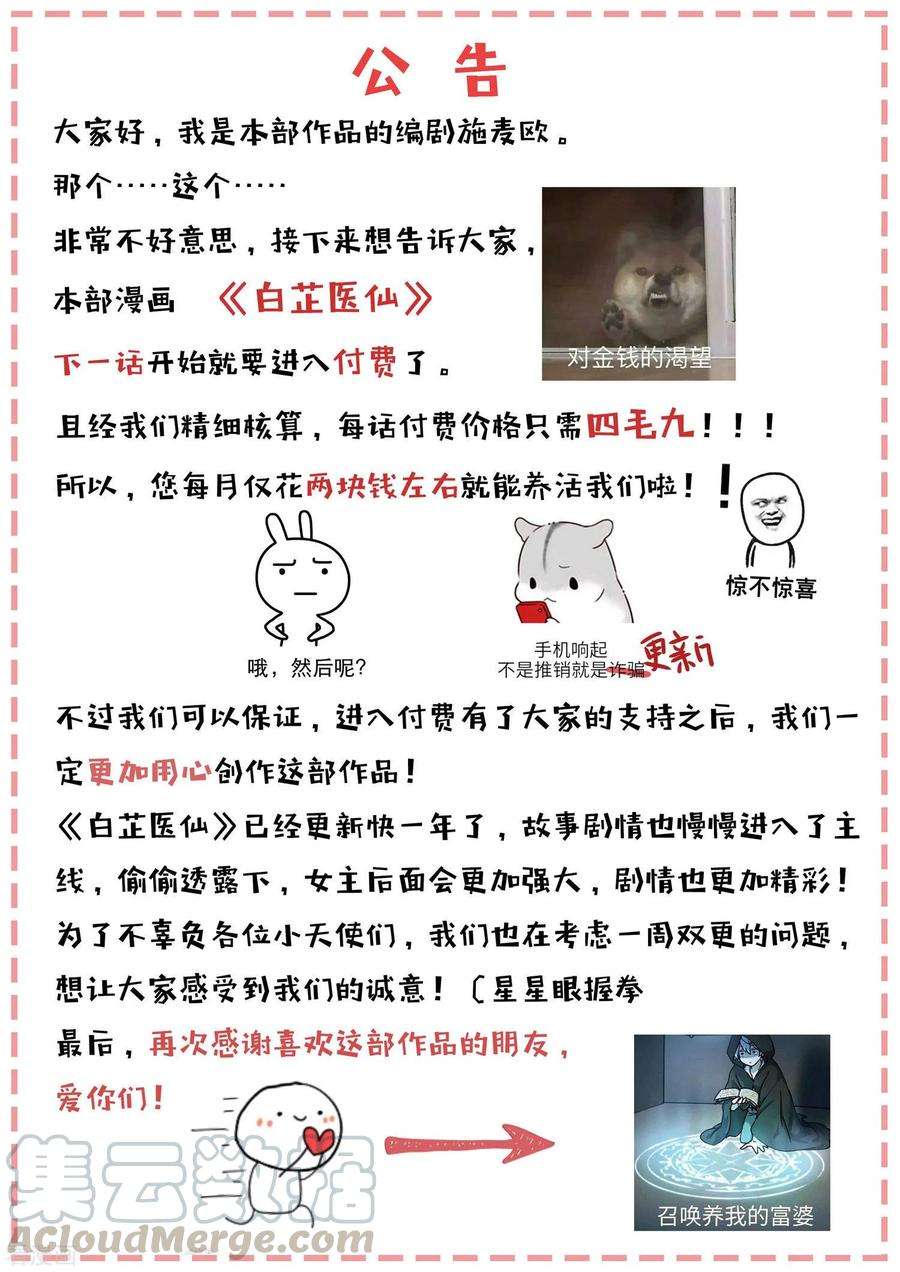 公告
大家好，我是本部作品的编剧施麦欧。
那个……这个……
非常不好意思，接下来想告诉大家，
本部漫画 《白芷医仙》
下一话开始就要进入付费了。
对金钱的渴望
且经我们精细核算，每话付费价格只需四毛九！！！
所以，您每月仅花两块钱左右就能养活我们啦！！
惊不惊喜
哦，然后呢？
手机响起
不是推销就是诈骗
更新
不过我们可以保证，进入付费有了大家的支持之后，我们一
定更加用心创作这部作品！
《白芷医仙》已经更新快一年了，故事剧情也慢慢进入了主
线，偷偷透露下，女主后面会更加强大，剧情也更加精彩！
为了不辜负各位小天使们，我们也在考虑一周双更的问题，
想让大家感受到我们的诚意！〔星星眼握拳
最后，再次感谢喜欢这部作品的朋友，
爱你们！
召唤养我的富婆
集云数据
ACloudMerge.com